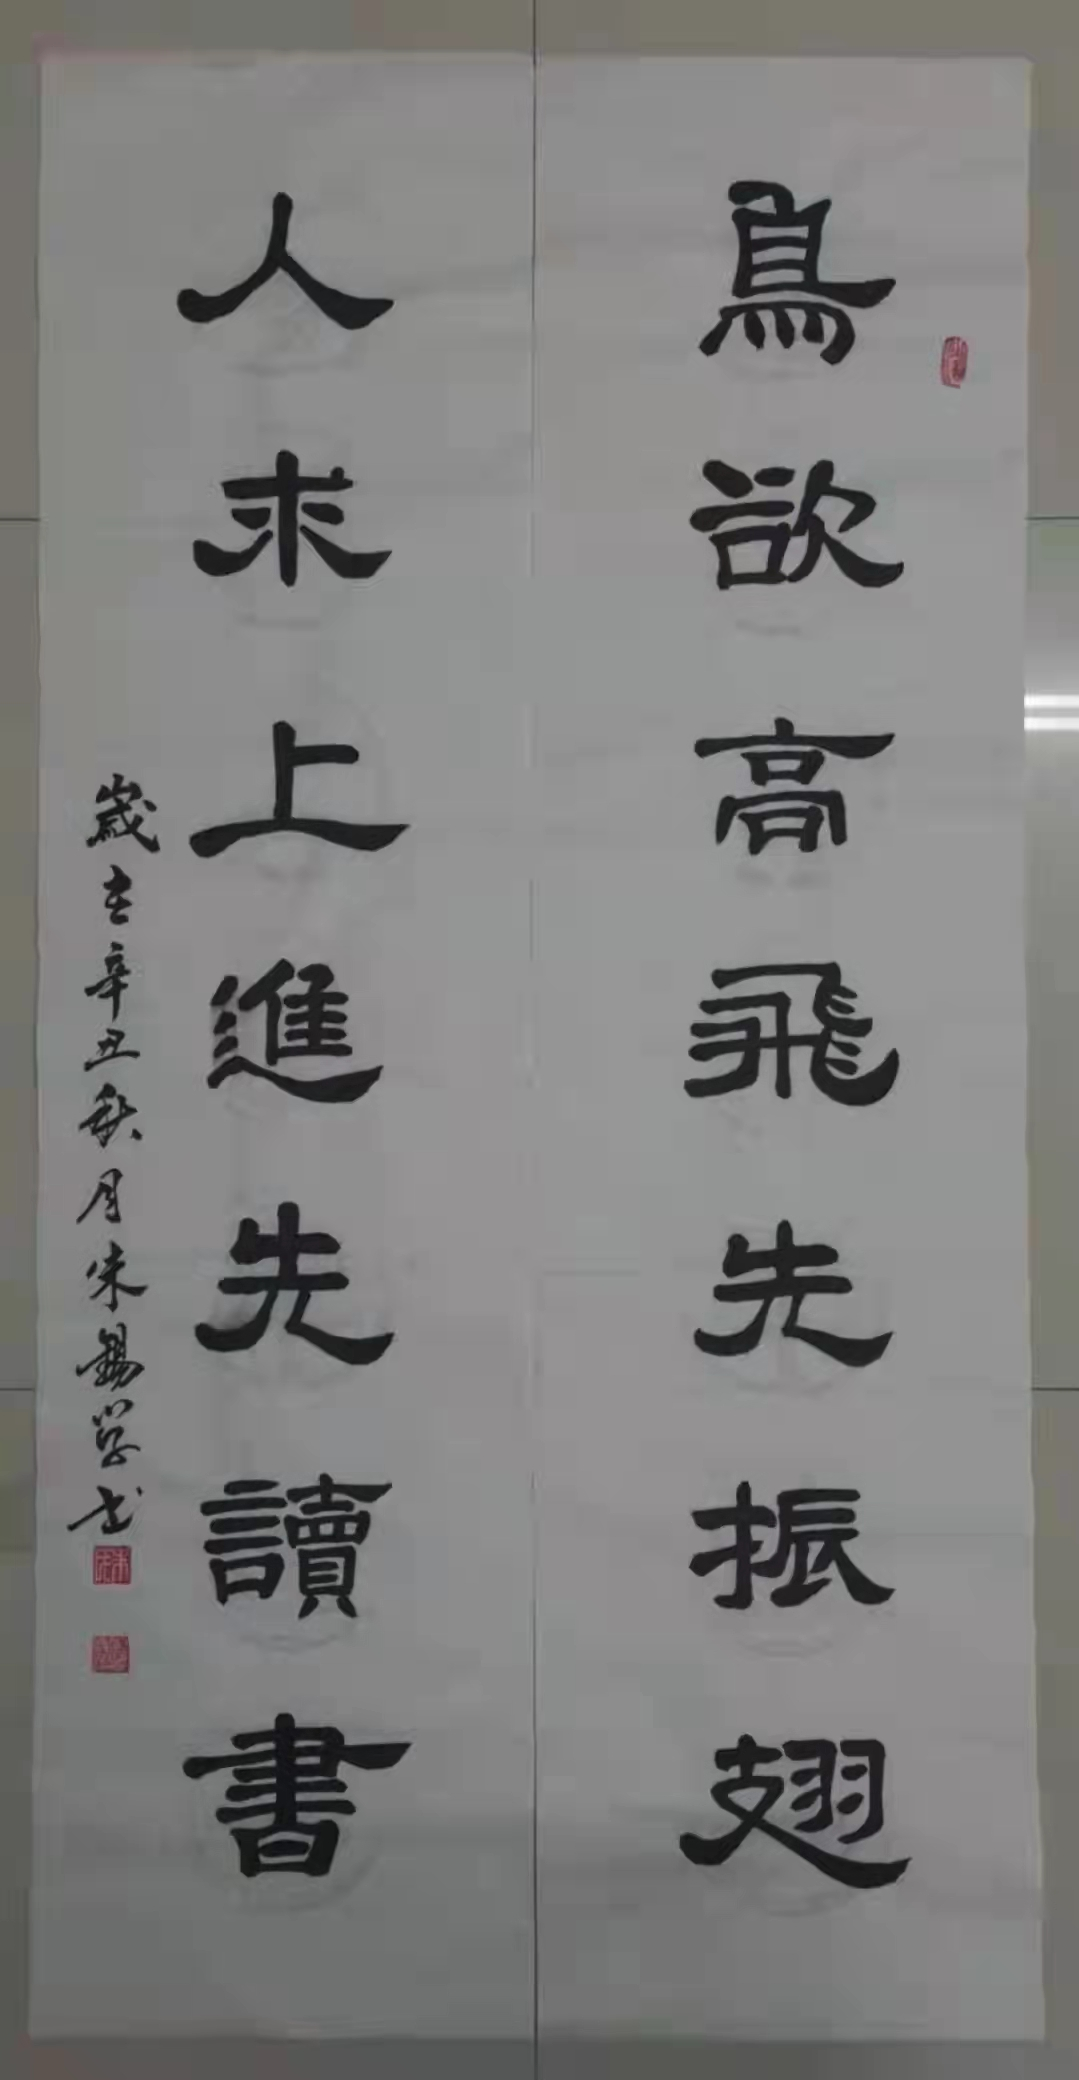 鳥欲高飛先振翅
人求上進先讀書
歲在辛丑秋月朱錫學书